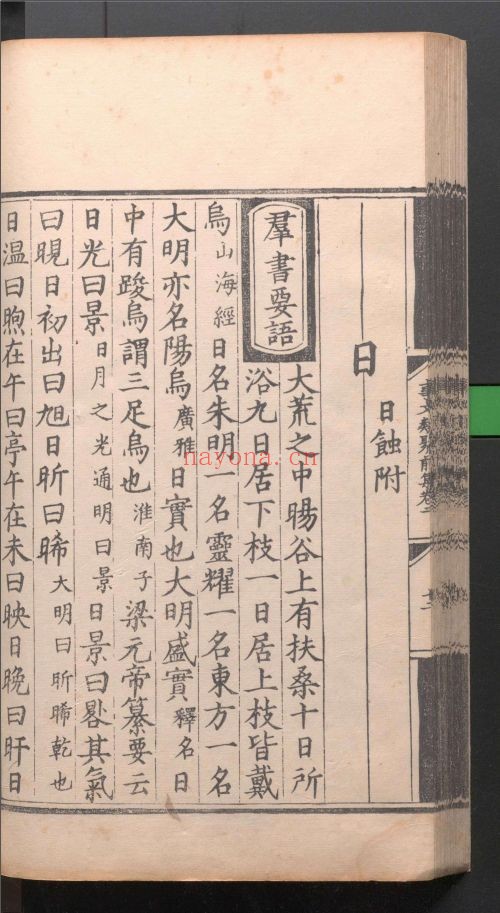 日
日蝕附
羣書要語
大荒之中暘谷上有扶桑十日所
浴九日居下枝一日居上枝皆戴
烏山海經日名朱明一名靈耀一名東方一名
大明亦名陽烏廣雅日實也大明盛實釋名日
中有踆烏謂三足烏也淮南子梁元帝纂要云
日光曰景日月之光通明曰景日景曰晷其氣
曰晛日初出曰旭日昕曰晞大明曰昕晞乾也
日温曰煦在午曰亭午在未曰映日晚曰旰日
事文類聚前集卷二
nayona.cn